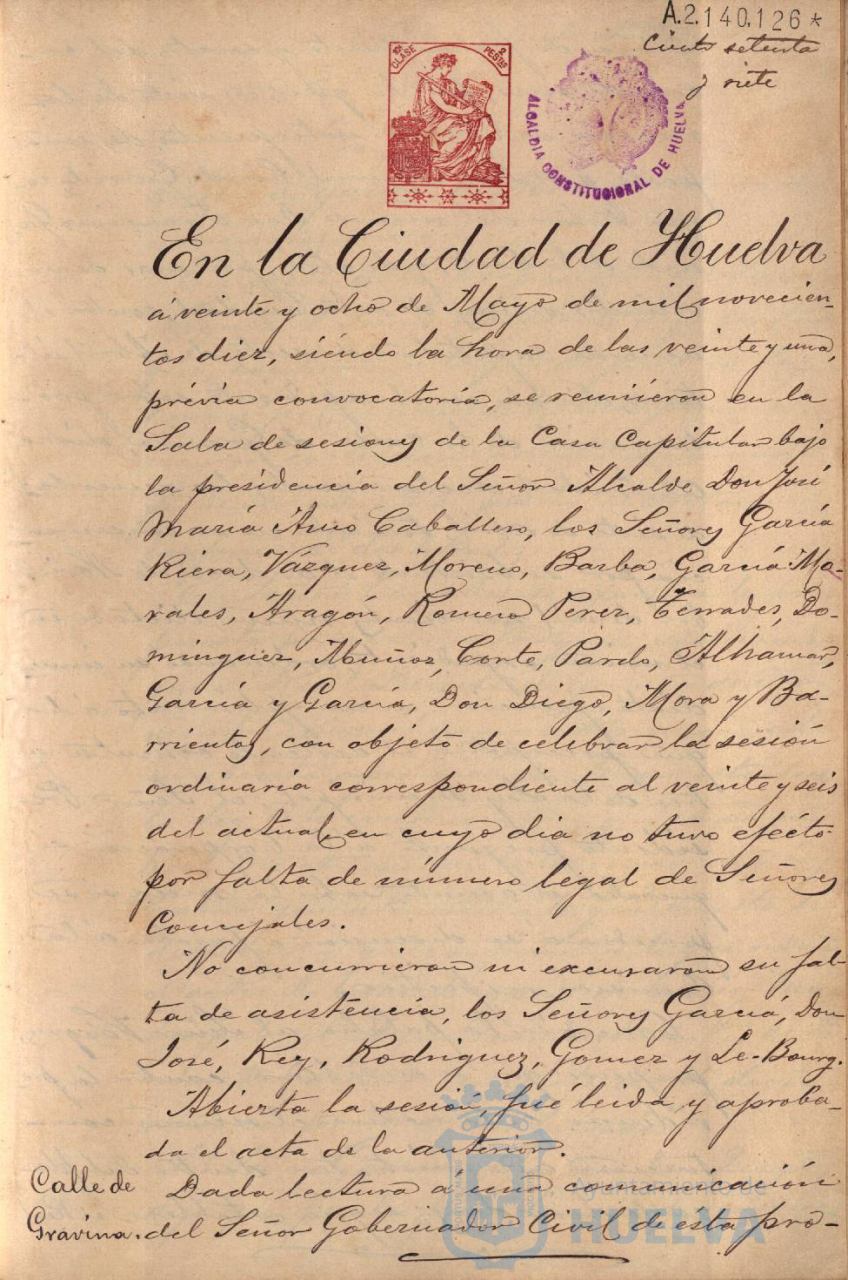 A.2.140.126*
Ciento setenta
y siete
10ª CLASE 2 PESTAS
ALCALDIA CONSTITUCIONAL DE HUELVA
En la Ciudad de Huelva
á veinte y ocho de Mayo de mil novecien-
tos diez, siéndo la hora de las veinte y una,
prévia convocatoria, se reunieron en la
Sala de sesiones de la Casa Capitular bajo
la presidencia del Señor Alcalde Don José
María Amo Caballero, los Señores García
Riera, Vázquez, Moreno, Barba, García Mo-
rales, Aragón, Romero Perez, Terrades, Do-
minguez, Muñoz, Corte, Pardo, Alhamar,
García y García, Don Diego, Mora y Ba-
rrientos, con objeto de celebrar la sesión
ordinaria correspondiente al veinte y seis
del actual, en cuyo dia no tuvo efécto
por falta de número legal de Señores
Concejales.
No concurrieron ni excusaron su fal-
ta de asisténcia, los Señores García, Don
José, Rey, Rodriguez, Gomez y Le-Bourg.
Abierta la sesión, fué leida y aproba-
da el acta de la anterior.
Calle de Gravina.
Dada lectura á una comunicación
del Señor Gobernador Civil de esta pro-
HUELVA